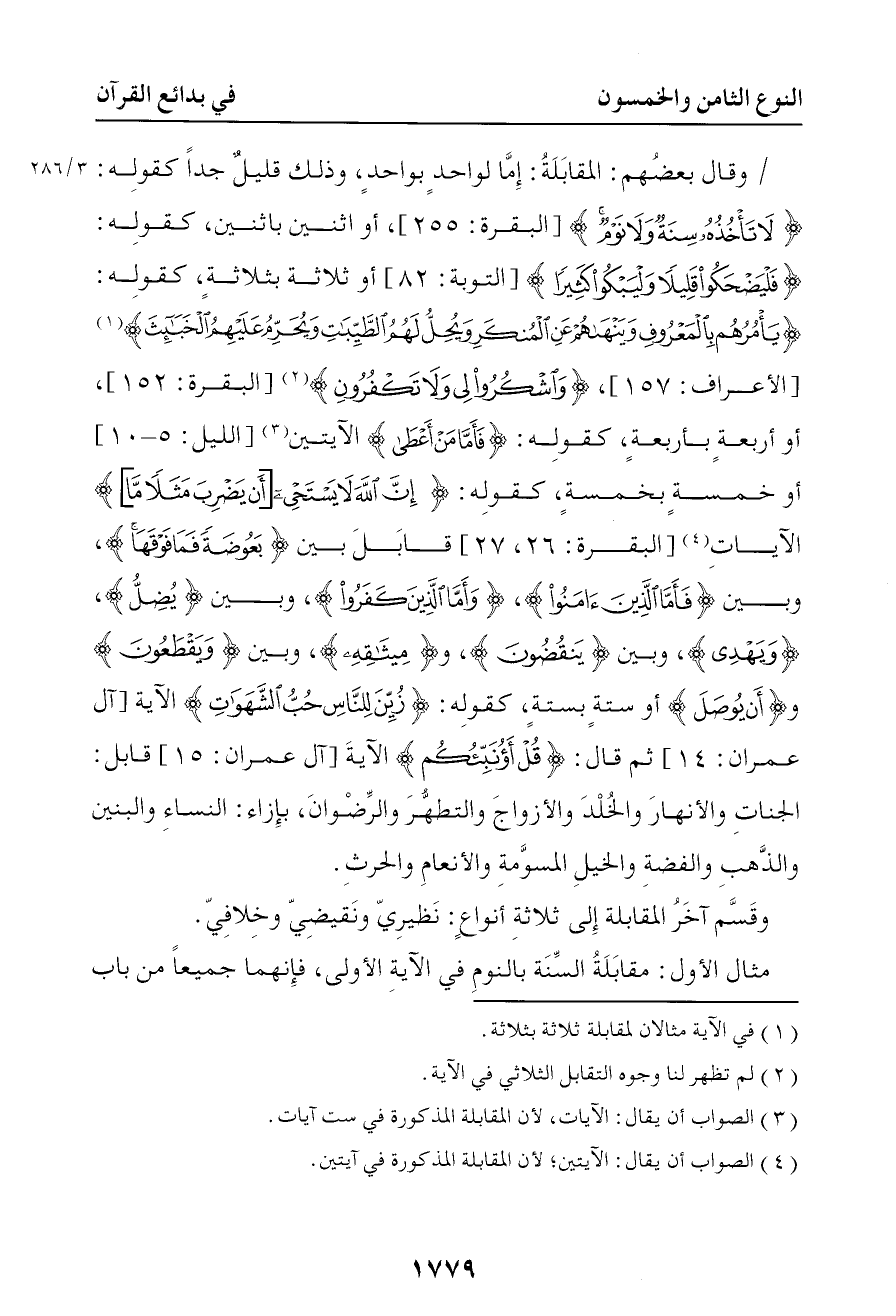 النوع الثامن والخمسون في بدائع القرآن
/ وقال بعضُهم: المقابَلَةُ: إمَّا لواحدٍ بواحدٍ، وذلك قليلٌ جداً كقوله: ٢٨٦/٣
﴿ لَا تَأْخُذُهُۥ سِنَةٌ وَلَا نَوْمٌ ۚ ﴾ [البقرة: ٢٥٥]، أو اثنين باثنين، كقوله:
﴿ فَلْيَضْحَكُوا۟ قَلِيلًا وَلْيَبْكُوا۟ كَثِيرًا ﴾ [التوبة: ٨٢] أو ثلاثة بثلاثةٍ، كقوله:
﴿ يَأْمُرُهُم بِالْمَعْرُوفِ وَيَنْهَىٰهُمْ عَنِ الْمُنكَرِ وَيُحِلُّ لَهُمُ الطَّيِّبَٰتِ وَيُحَرِّمُ عَلَيْهِمُ الْخَبَٰٓئِثَ ﴾(١)
[الأعراف: ١٥٧]، ﴿ وَاشْكُرُوا۟ لِى وَلَا تَكْفُرُونِ ﴾(٢) [البقرة: ١٥٢]،
أو أربعةٍ بأربعةٍ، كقوله: ﴿ فَأَمَّا مَنْ أَعْطَىٰ ﴾ الآيتين(٣) [الليل: ٥-١٠]
أو خمسةٍ بخمسةٍ، كقوله: ﴿ إِنَّ اللَّهَ لَا يَسْتَحْىِۦٓ [أَن يَضْرِبَ مَثَلًا مَّا] ﴾
الآيات(٤) [البقرة: ٢٦، ٢٧] قابَلَ بين ﴿ بَعُوضَةً فَمَا فَوْقَهَا ۚ ﴾،
وبين ﴿ فَأَمَّا الَّذِينَ ءَامَنُوا۟ ﴾، ﴿ وَأَمَّا الَّذِينَ كَفَرُوا۟ ﴾، وبين ﴿ يُضِلُّ ﴾،
﴿ وَيَهْدِى ﴾، وبين ﴿ يَنقُضُونَ ﴾، و﴿ مِيثَٰقِهِۦ ﴾، وبين ﴿ وَيَقْطَعُونَ ﴾
و﴿ أَن يُوصَلَ ﴾ أو ستةٍ بستةٍ، كقوله: ﴿ زُيِّنَ لِلنَّاسِ حُبُّ الشَّهَوَٰتِ ﴾ الآية [آل
عمران: ١٤] ثم قال: ﴿ قُلْ أَؤُنَبِّئُكُم ﴾ الآيةَ [آل عمران: ١٥] قابل:
الجناتِ والأنهارَ والخُلْدَ والأزواجَ والتطهُّرَ والرِّضْوانَ، بإزاء: النساءِ والبنين
والذَّهبِ والفضةِ والخيلِ المسوَّمةِ والأنعامِ والحرثِ.
وقَسَّم آخَرُ المقابلة إلى ثلاثةِ أنواعٍ: نَظيريّ ونَقيضيّ وخلافيّ.
مثال الأول: مقابَلَةُ السِّنَة بالنومِ في الآيةِ الأولى، فإنهما جميعاً من باب
(١) في الآية مثالان لمقابلة ثلاثة بثلاثة.
(٢) لم تظهر لنا وجوه التقابل الثلاثي في الآية.
(٣) الصواب أن يقال: الآيات، لأن المقابلة المذكورة في ست آيات.
(٤) الصواب أن يقال: الآيتين؛ لأن المقابلة المذكورة في آيتين.
١٧٧٩